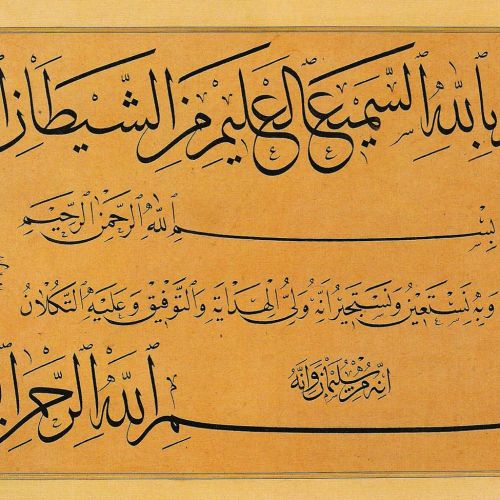 بالله السميع العليم من الشيطان
بسم الله الرحمن الرحيم
وبه نستعين ونستجير انه ولي الهداية والتوفيق وعليه التكلان
انه من سليمان وانه
بسم الله الرحمن